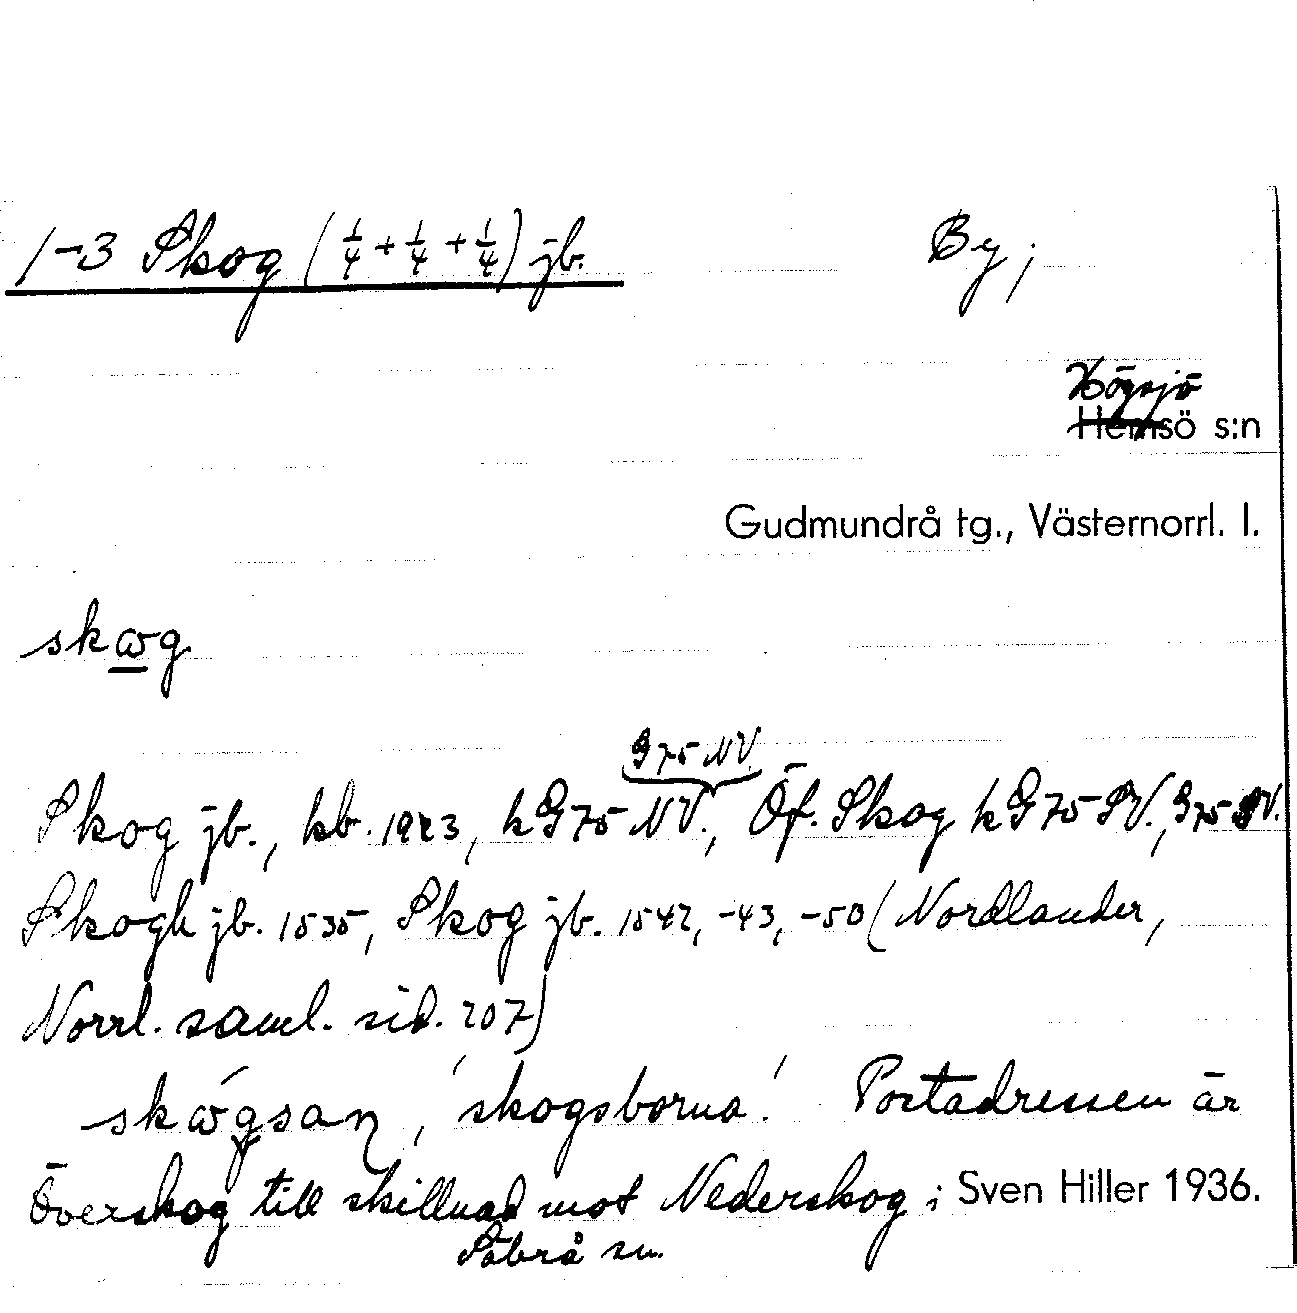 1-3 Skog (1/4 + 1/4 + 1/4) jb. By;
Högsjö
Hemsö s:n
Gudmundrå tg., Västernorrl. l.
skωg
G 75 NV.
Skog jb., kb. 1923, kG 75 NV., Öf. Skog kG 75 SV., G 75 SV.
Skogh jb. 1535, Skog jb. 1542, -43, -50 (Nordlander,
Norrl. saml. sid. 207)
skωgsan, 'skogsborna'. Postadressen är
Överskog till skillnad mot Nederskog i Sven Hiller 1936.
Säbrå sn.